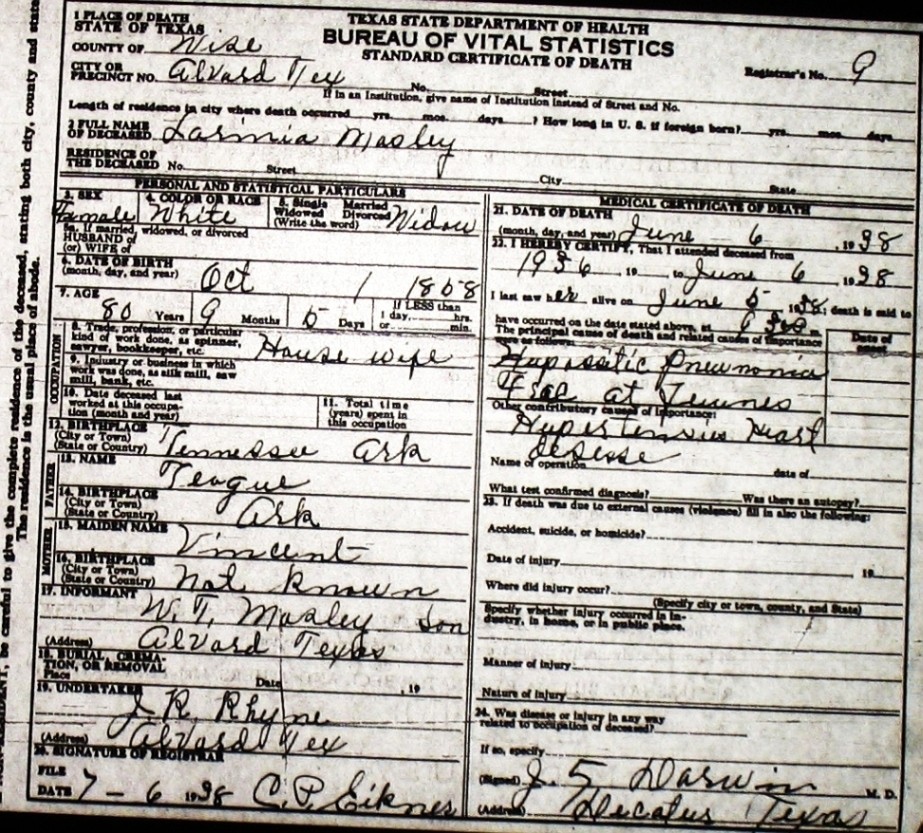 TEXAS STATE DEPARTMENT OF HEALTH
BUREAU OF VITAL STATISTICS
STANDARD CERTIFICATE OF DEATH
1 PLACE OF DEATH
STATE OF TEXAS
COUNTY OF Wise
CITY OR PRECINCT NO. Alvard Tex No. Street
Registrar's No. 9
If in an Institution, give name of Institution instead of Street and No.
Length of residence in city where death occurred yrs. mos. days. ? How long in U. S. if foreign born? yrs. mos. days.
2 FULL NAME OF DECEASED Masley
RESIDENCE OF THE DECEASED No. Street City State
PERSONAL AND STATISTICAL PARTICULARS
3. SEX Female
4. COLOR OR RACE White
5. Single Married Widowed Divorced (Write the word) Widow
5a. If married, widowed, or divorced HUSBAND of (or) WIFE of
6. DATE OF BIRTH (month, day, and year) Oct 1
7. AGE 80 Years 9 Months 5 Days If LESS than 1 day, hrs. or min.
OCCUPATION
8. Trade, profession, or particular kind of work done, as spinner, sawyer, bookkeeper, etc. House wife
9. Industry or business in which work was done, as silk mill, saw mill, bank, etc.
10. Date deceased last worked at this occupation (month and year)
11. Total time (years) spent in this occupation
12. BIRTHPLACE (City or Town) (State or Country) Tennessee Ark
FATHER
13. NAME Teague
14. BIRTHPLACE (City or Town) (State or Country) Ark
MOTHER
15. MAIDEN NAME Vincent
16. BIRTHPLACE (City or Town) (State or Country) Not Known
17. INFORMANT W. T. Masley Son
(Address) Alvard Texas
18. BURIAL, CREMATION, OR REMOVAL
Place Date , 19
19. UNDERTAKER J. R. Rhyne
(Address) Alvard Tex
20. SIGNATURE OF REGISTRAR
FILE DATE 7 - 6 1938 C. P. Eiknes
MEDICAL CERTIFICATE OF DEATH
21. DATE OF DEATH (month, day, and year) June 6, 1938
22. I HEREBY CERTIFY, That I attended deceased from
1936, 19 to June 6 1938
I last saw her alive on June 5 1938; death is said to
have occurred on the date stated above, at m.
The principal cause of death and related causes of importance were as follows:
Date of onset
Pneumonia
at
Other contributory causes of importance:
Heart
Name of operation date of
What test confirmed diagnosis? Was there an autopsy?
23. If death was due to external causes (violence) fill in also the following:
Accident, suicide, or homicide?
Date of injury 19
Where did injury occur?
(Specify city or town, county, and State)
Specify whether injury occurred in industry, in home, or in public place.
Manner of injury
Nature of injury
24. Was disease or injury in any way related to occupation of deceased?
If so, specify
(Signed) J. 5 Darwin M. D.
(Address) Decatur Texas
be careful to give the complete residence of the deceased, stating both city, county and state
The residence is the usual place of abode.